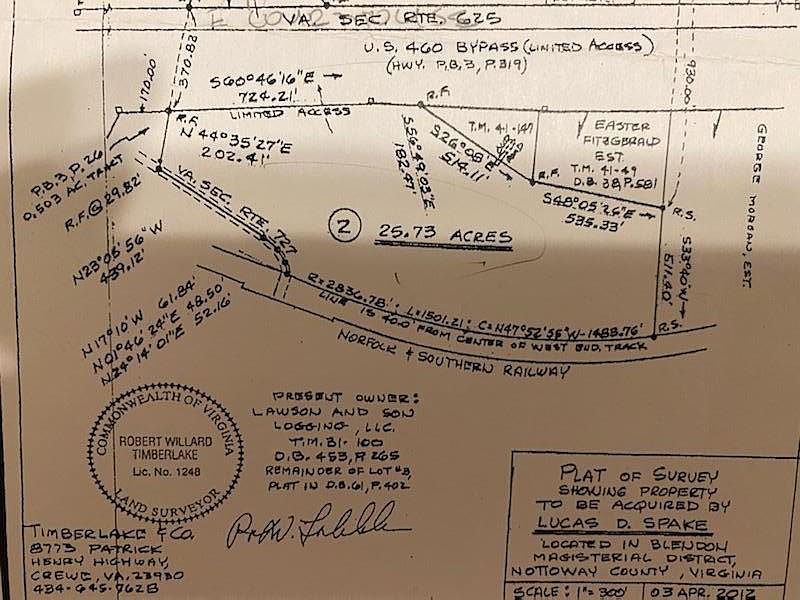 VA. SEC. RTE. 625
U.S. 460 BYPASS (LIMITED ACCESS)
(HWY. P.B.3, P.319)
170.00'
370.82'
930.00'
S60°46'16"E
724.21'
LIMITED ACCESS
R.F.
R.F.
N 44°35'27"E
202.41'
P.B.3, P.26
0.503 AC. TRACT
R.F. @ 29.82'
VA. SEC. RTE. 727
S56°49'03"E
182.47'
S26°08'E
514.11'
T.M. 41-147
EASTER
FITZGERALD
EST.
T.M. 41-49
D.B. 38, P.581
R.F.
S48°05'26"E
535.33'
R.S.
GEORGE MORGAN, EST.
S33°40'W
511.40'
2
25.73 ACRES
N23°05'56"W
439.12'
N17°10'W 61.84'
N01°46'24"E 48.50'
N24°14'01"E 52.16'
R=2836.78' L=1501.21' C=N47°52'55"W-1483.76'
R.S.
LINE IS 40.0' FROM CENTER OF WEST BND. TRACK
NORFOLK & SOUTHERN RAILWAY
COMMONWEALTH OF VIRGINIA
ROBERT WILLARD
TIMBERLAKE
Lic. No. 1248
LAND SURVEYOR
PRESENT OWNER:
LAWSON AND SON
LOGGING, LLC.
T.M. 31-100
D.B. 453, P. 265
REMAINDER OF LOT #3,
PLAT IN D.B.61, P.402
TIMBERLAKE & CO.
8773 PATRICK
HENRY HIGHWAY,
CREWE, VA. 23930
434-645-7628
PLAT OF SURVEY
SHOWING PROPERTY
TO BE ACQUIRED BY
LUCAS D. SPAKE
LOCATED IN BLENDON
MAGISTERIAL DISTRICT,
NOTTOWAY COUNTY, VIRGINIA
SCALE: 1"=300'
03 APR. 2012